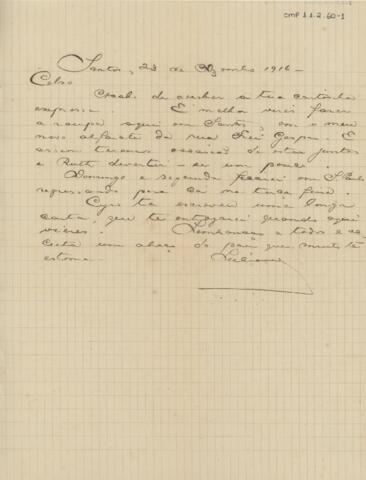 CMP 1.1.2.60-1
Santos, 23 de Dezembro 1916 -
Celso
Acabo de receber a tua cartinha
expressa. É melhor vires fazer
a roupa aqui em Santos, com o meu
novo alfaiate da rua Frei Gaspar. E
assim teremos occasião de estar juntos
e Ruth divertir-se um pouco.
Domingo e segunda ficarei em S. Paulo
regressando para cá na terça feira.
Cyro te escreveu uma longa
carta, que te entregarei quando aqui
vieres. Lembranças a todos e ac
ceita um abraço do pae que muito te
estima